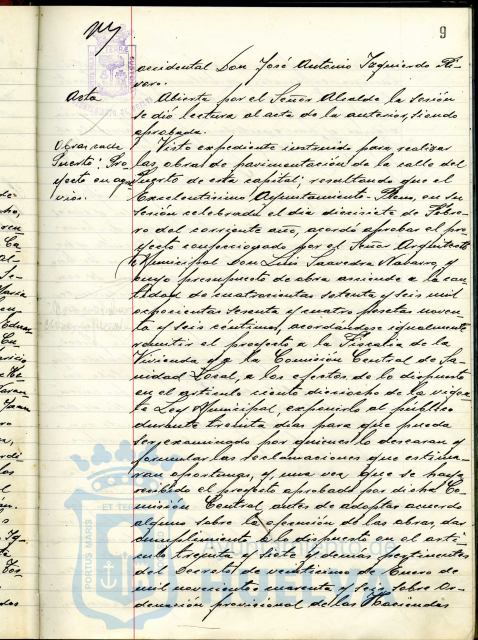 9
accidental Don José Antonio Izquierdo Pi-
voro.
Acta
Abierta por el Señor Alcalde la sesión
se dió lectura al acta de la anterior, siendo
aprobada.
Obras calle
Puerto; Pro
yecto en
Visto expediente instruido para realizar
las obras de pavimentación de la calle del
Puerto de esta capital; resultando que el
Excelentísimo Ayuntamiento Pleno, en su
sesión celebrada el día diecisiete de Febre-
ro del corriente año, acordó aprobar el pro-
yecto confeccionado por el Señor Arquitecto
Municipal Don Luis Saavedra Navarro, y
cuyo presupuesto de obra asciende a la can-
tidad de cuatrocientas setenta y seis mil
setenta y cuatro pesetas noven-
ta y seis céntimos, acordándose igualmente
remitir el proyecto a la Fiscalía de la
Vivienda y a la Comisión Central de Sa-
nidad Local, a los efectos de lo dispuesto
en el artículo ciento dieciocho de la vigen-
te Ley Municipal, exponerlo al público
durante treinta días para que pueda
ser examinado por quienes lo desearan y
formular las reclamaciones que estima-
ran oportunas, y, una vez que se haya
recibido el proyecto aprobado por dicha Co-
misión Central, antes de adoptar acuerdo
alguno sobre la ejecución de las obras, dar
cumplimiento a lo dispuesto en el artí-
culo treinta y siete
del Decreto de veinticinco de Enero de
mil novecientos cuarenta y seis, sobre Or-
denación provisional de las Haciendas
PORTUS MARIS
ET TERRAE
Ayuntamiento de
HUELVA